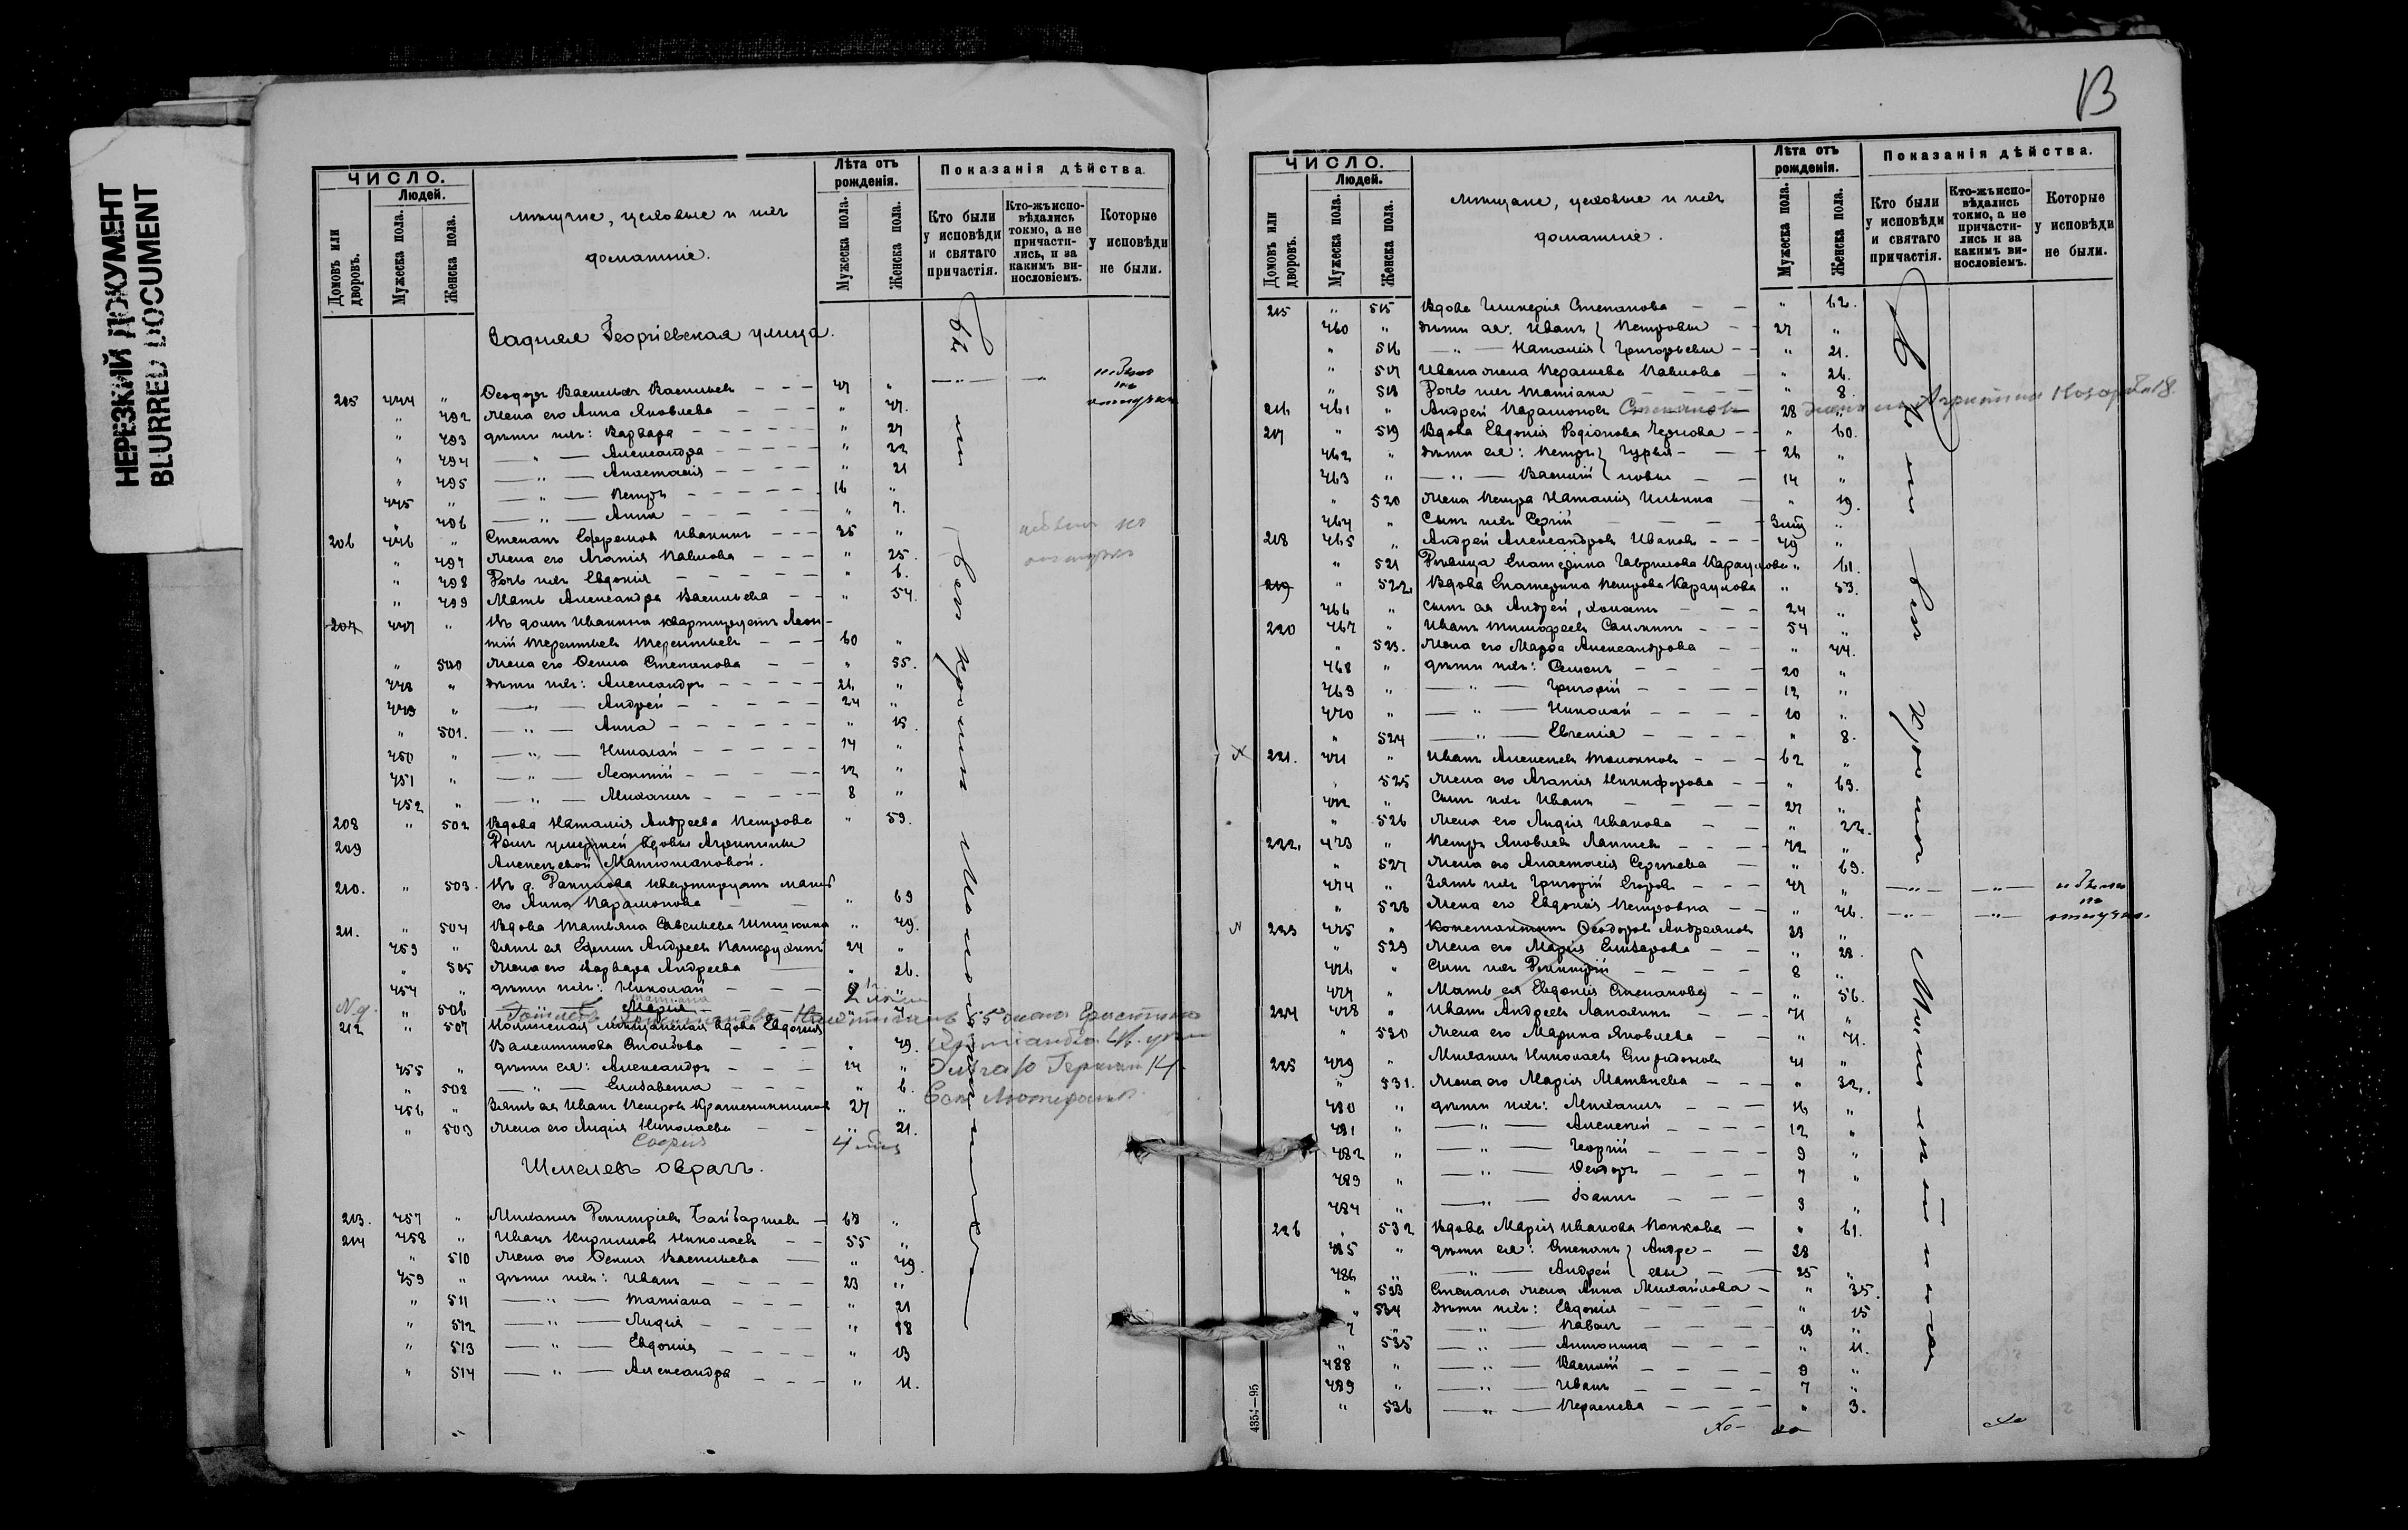 НЕРЕЗКИЙ ДОКУМЕНТ
BLURRED DOCUMENT
ЧИСЛО.
Людей.
Домовъ или дворовъ.
Мужеска пола.
Женска пола.
мѣщане, цеховые и ихъ
домашніе.
Лѣта отъ рожденія.
Мужеска пола.
Женска пола.
Показанія дѣйства.
Кто были у исповѣди и святаго причастія.
Кто-жъ исповѣдались токмо, а не причастились, и за какимъ винословіемъ.
Которые у исповѣди не были.
Задняя Георгіевская улица.
205 444 " Ѳеодоръ Васильевъ Васильевъ 47 "
" 492 Жена его Анна Яковлева " 47.
" 493 дѣти ихъ: Варвара " 27
" 494 — " — Александра " 22
" 495 — " — Анастасія " 21
445 " — " — Петръ 16 "
" 496 — " — Анна " 7.
206 446 " Степанъ Ефремовъ Ивакинъ 35 "
" 497 Жена его Агапія Павлова " 25.
" 498 Дочь ихъ Евдокія " 6.
" 499 Мать Александра Васильева " 54.
207 447 " Въ домѣ Ивакина квартируетъ Леон-
тій Терентьевъ Терентьевъ 60 "
" 500 Жена его Ѳекла Степанова " 55.
448 " дѣти ихъ: Александръ 26 "
449 " — " — Андрей 24 "
" 501. — " — Анна " 15.
450 " — " — Николай 14 "
451 " — " — Леонтій 12 "
452 " — " — Михаилъ 8 "
208 " 502 Вдова Наталія Андреева Петрова " 59.
209 Домъ умершей вдовы Агрипины
Алексѣевой Матюшаковой.
210. " 503. Въ д. квартируетъ мать
его Анна Парамонова " 69
211. " 504 Вдова Татьяна Савельева Шишкина " 49.
453 " Зять ея Ефимъ Андреевъ 24 "
" 505 Жена его Варвара Андреева " 26.
454 " дѣти ихъ: Николай
" 506 — " — Марія
212 " 507 Коломенская мѣщанская вдова Евдокія
Валентинова " 49.
455 " дѣти ея: Александръ 14 "
" 508 — " — Елисавета " 6.
456 " Зять ея Иванъ Петровъ Крашенинниковъ 27 "
" 509 Жена его Лидія Николаева " 21.
Шмелевъ оврагъ.
213. 457 " Михаилъ Димитріевъ 68 "
214 458 " Иванъ Кирилловъ Николаевъ 55 "
" 510 Жена его Ѳекла Васильева " 49.
459 " дѣти ихъ: Иванъ 23 "
" 511 — " — Татіана " 21
" 512 — " — Лидія " 18
" 513 — " — Евдокія " 13
" 514 — " — Александра " 11.
13
ЧИСЛО.
Людей.
Домовъ или дворовъ.
Мужеска пола.
Женска пола.
мѣщане, цеховые и ихъ
домашніе.
Лѣта отъ рожденія.
Мужеска пола.
Женска пола.
Показанія дѣйства.
Кто были у исповѣди и святаго причастія.
Кто-жъ исповѣдались токмо, а не причастились и за какимъ винословіемъ.
Которые у исповѣди не были.
215 " 515 Вдова Гликерія Степанова " 62.
460 " дѣти ея: Иванъ } Петровы 27 "
" 516 — " — Наталія } Григорьевы " 21.
" 517 Ивана жена Параскева Павлова " 26.
" 518 Дочь ихъ Татіана " 8.
216 461 " Андрей Парамоновъ Степановъ 28
217 " 519 Вдова Евдокія Родіонова Чернова " 60.
462 " дѣти ея: Петръ } Гурья- 26 "
463 " — " — Василій } новы 14 "
" 520 Жена Петра Наталія Ильина " 19.
464 " Сынъ ихъ Сергій "
218 465 " Андрей Александровъ Ивановъ 49 "
" 521 Дѣвица Екатерина Гаврилова Караулова " 61.
219 " 522. Вдова Екатерина Петрова Караулова " 53.
466 " Сынъ ея Андрей, холостъ 24 "
220 467 " Иванъ Тимофеевъ 54 "
" 523. Жена его Марѳа Александрова " 44.
468 " дѣти ихъ: Семенъ 20 "
469 " — " — Григорій 12 "
470 " — " — Николай 10 "
" 524 — " — Евгенія " 8.
221. 471 " Иванъ Алексѣевъ 62 "
" 525 Жена его Агапія Никифорова " 63.
472 " Сынъ ихъ Иванъ 27 "
" 526 Жена его Лидія Иванова " 22.
222. 473 " Петръ Яковлевъ Лаптевъ 72 "
" 527 Жена его Анастасія Сергѣева " 69.
474 " Зять ихъ Григорій Егоровъ 47 "
" 528 Жена его Евдокія Петровна " 46.
223 475 " Константинъ Ѳеодоровъ Андреяновъ 33 "
" 529 Жена его Марія Елизарова " 28.
476 " Сынъ ихъ Димитрій 8 "
477 " Мать ея Евдокія Степанова " 56.
224 478 " Иванъ Андреевъ 71 "
" 530 Жена его Марина Яковлева " 71.
225 479 " Михаилъ Николаевъ Спиридоновъ 41 "
" 531. Жена его Марія Матвѣева " 32.
480 " дѣти ихъ: Михаилъ 16 "
481 " — " — Алексѣй 12 "
482 " — " — Георгій 9 "
483 " — " — Ѳеодоръ 7 "
484 " — " — Іоаннъ 3 "
226 " 532 Вдова Марія Иванова Попкова " 61.
485 " дѣти ея: Степанъ } Андре- 38
486 " — " — Андрей } евы 25 "
" 533 Степана жена Анна Михайлова " 35.
" 534 дѣти ихъ: Евдокія " 15
7 " — " — Павелъ 13 "
" 535 — " — Антонина " 11.
488 " — " — Василій 9 "
489 " — " — Иванъ 7 "
" 536 — " — Параскева " 3.
4354—95